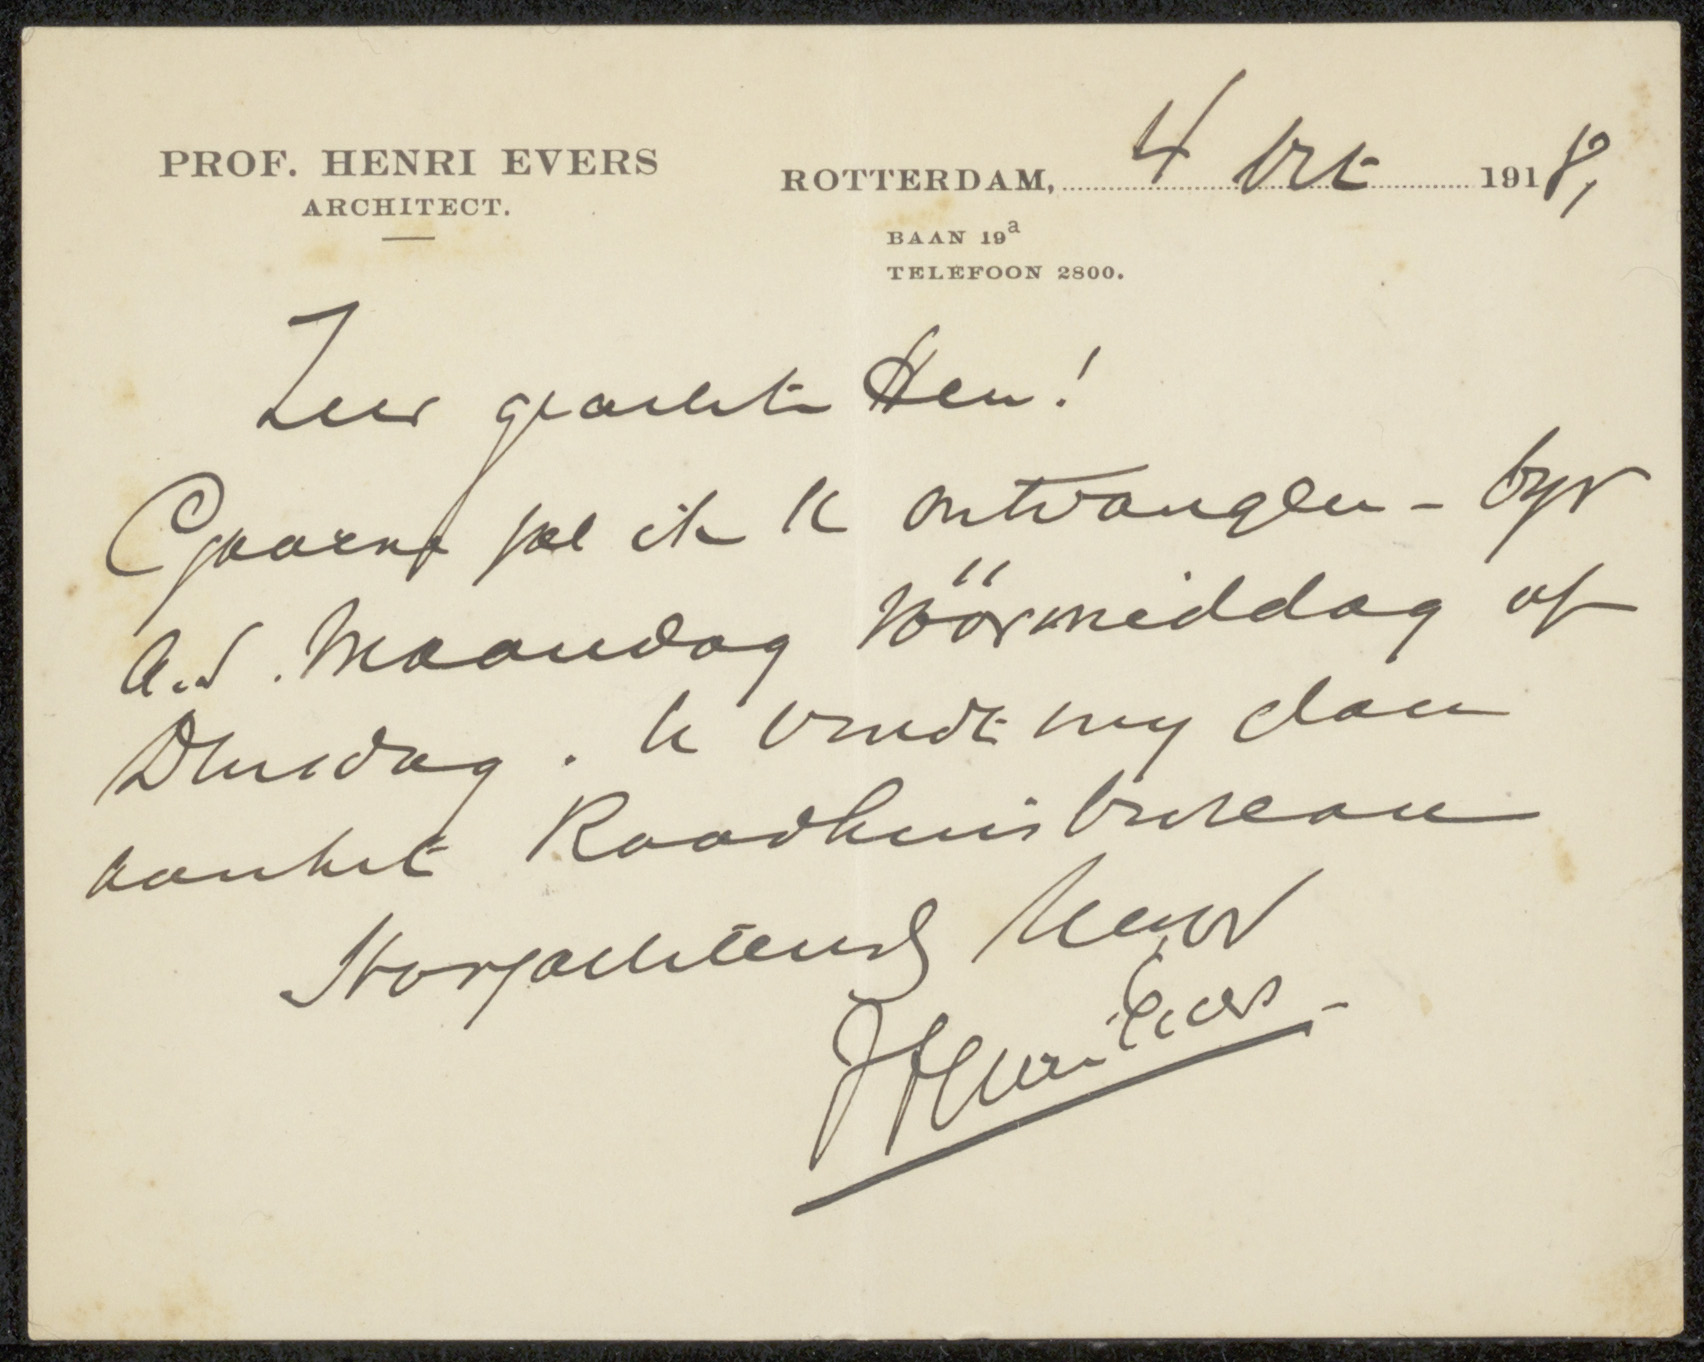 PROF. HENRI EVERS
ARCHITECT.
ROTTERDAM, 4 Oct 1918,
BAAN 19a
TELEFOON 2800.
Zeer geachte Heer!
Gaarne zal ik U ontvangen - byv
a.s. Maandag vóórmiddag of
Dinsdag. U vindt my dan
aan het Raadhuisbureau
Hoogachtend
Henri Evers -